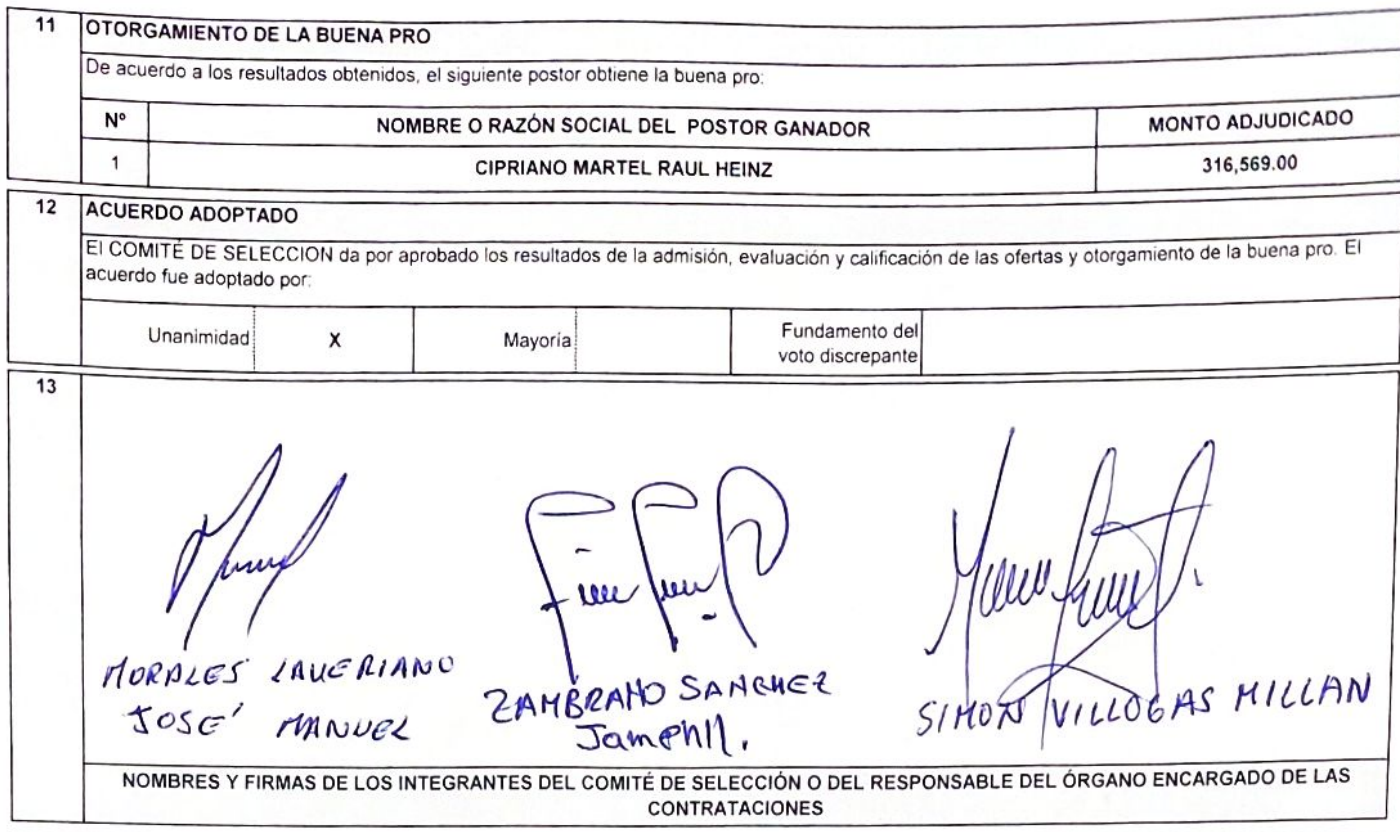 11 OTORGAMIENTO DE LA BUENA PRO
De acuerdo a los resultados obtenidos, el siguiente postor obtiene la buena pro:
Nº NOMBRE O RAZÓN SOCIAL DEL POSTOR GANADOR MONTO ADJUDICADO
1 CIPRIANO MARTEL RAUL HEINZ 316,569.00
12 ACUERDO ADOPTADO
El COMITÉ DE SELECCION da por aprobado los resultados de la admisión, evaluación y calificación de las ofertas y otorgamiento de la buena pro. El
acuerdo fue adoptado por:
Unanimidad X Mayoría Fundamento del
voto discrepante
13
MORALES LAUERIANO
JOSÉ MANUEL
ZAMBRANO SANCHEZ
SIMON VILLOGAS MILLAN
NOMBRES Y FIRMAS DE LOS INTEGRANTES DEL COMITÉ DE SELECCIÓN O DEL RESPONSABLE DEL ÓRGANO ENCARGADO DE LAS
CONTRATACIONES